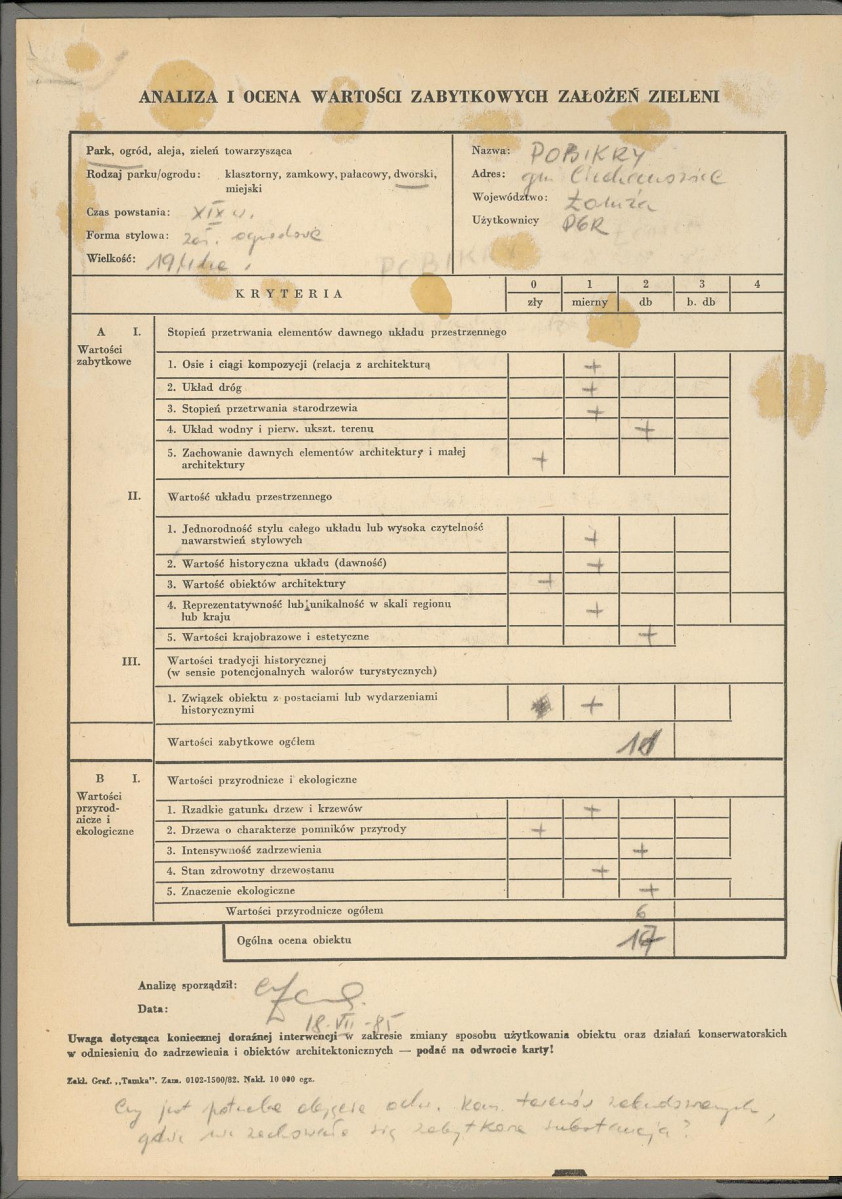 ANALIZA I OCENA WARTOŚCI ZABYTKOWYCH ZAŁOŻEŃ ZIELENI
Park, ogród, aleja, zieleń towarzysząca
Rodzaj parku/ogrodu: klasztorny, zamkowy, pałacowy, dworski,
miejski
Czas powstania: XIX w.
Forma stylowa: zał. ogrodowe
Wielkość:
Nazwa: POBIKRY
Adres: gm Ciechanowiec
Województwo: Łomża
Użytkownicy PGR
POBIKRY
KRYTERIA
0 1 2 3 4
zły mierny db b. db
A I. Stopień przetrwania elementów dawnego układu przestrzennego
Wartości
zabytkowe
1. Osie i ciągi kompozycji (relacja z architekturą +
2. Układ dróg +
3. Stopień przetrwania starodrzewia +
4. Układ wodny i pierw. ukszt. terenu +
5. Zachowanie dawnych elementów architektury i małej
architektury +
II. Wartość układu przestrzennego
1. Jednorodność stylu całego układu lub wysoka czytelność
nawarstwień stylowych +
2. Wartość historyczna układu (dawność) +
3. Wartość obiektów architektury +
4. Reprezentatywność lub unikalność w skali regionu
lub kraju +
5. Wartości krajobrazowe i estetyczne +
III. Wartości tradycji historycznej
(w sensie potencjonalnych walorów turystycznych)
1. Związek obiektu z postaciami lub wydarzeniami
historycznymi +
Wartości zabytkowe ogółem 11
B I. Wartości przyrodnicze i ekologiczne
Wartości
przyrod-
nicze i
ekologiczne
1. Rzadkie gatunki drzew i krzewów +
2. Drzewa o charakterze pomników przyrody +
3. Intensywność zadrzewienia +
4. Stan zdrowotny drzewostanu +
5. Znaczenie ekologiczne +
Wartości przyrodnicze ogółem 6
Ogólna ocena obiektu 17
Analizę sporządził:
Data: 18-VII-85
Uwaga dotycząca koniecznej doraźnej interwencji w zakresie zmiany sposobu użytkowania obiektu oraz działań konserwatorskich
w odniesieniu do zadrzewienia i obiektów architektonicznych — podać na odwrocie karty!
Zakł. Graf. „Tamka". Zam. 0102-1500/82. Nakł. 10 000 egz.
Czy jest potrzeba objęcia ochr. kon. terenów zabudowanych,
gdzie nie zachowała się zabytkowa substancja?